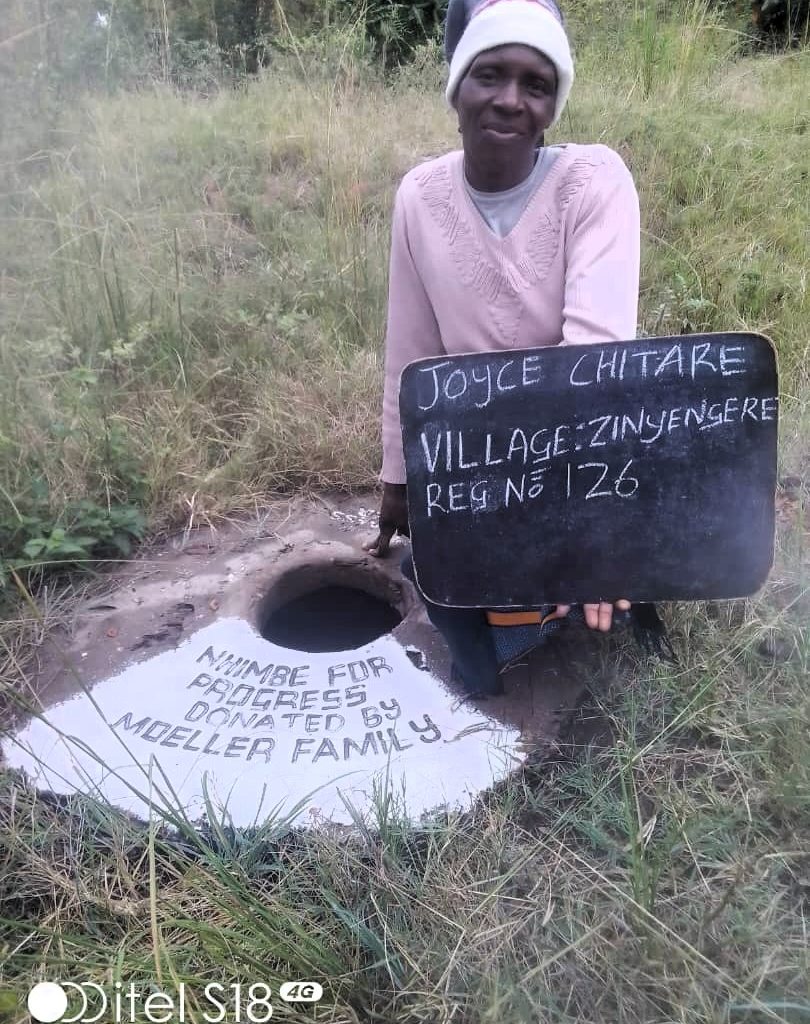 JOYCE CHITARE
VILLAGE: ZINYENGERE
REG No 126
NHIMBE FOR
PROGRESS
DONATED BY
MOELLER FAMILY
itel S18 4G